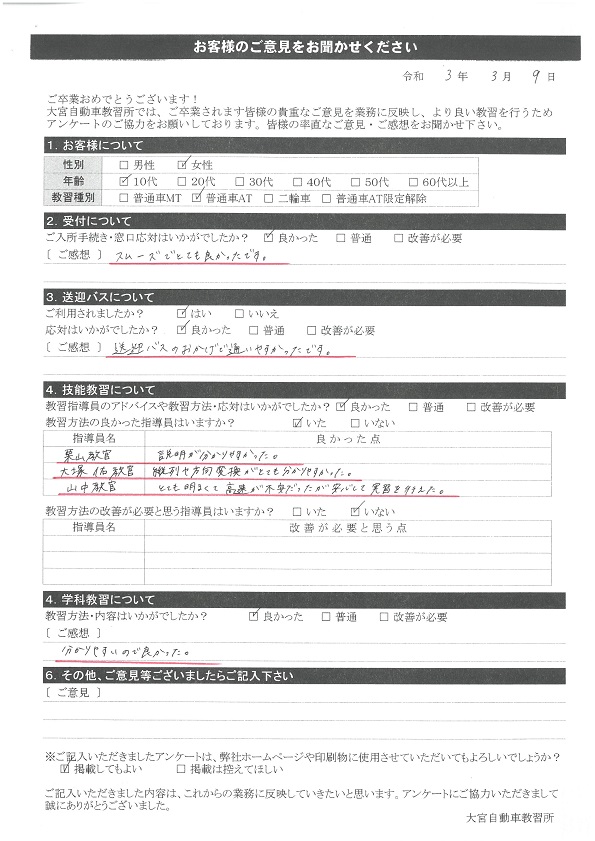 お客様のご意見をお聞かせください
令和 3 年 3 月 9 日
ご卒業おめでとうございます！
大宮自動車教習所では、ご卒業されます皆様の貴重なご意見を業務に反映し、より良い教習を行うため
アンケートのご協力をお願いしております。皆様の率直なご意見・ご感想をお聞かせ下さい。
1. お客様について
性別 □ 男性 ☑ 女性
年齢 ☑ 10代 □ 20代 □ 30代 □ 40代 □ 50代 □ 60代以上
教習種別 □ 普通車MT ☑ 普通車AT □ 二輪車 □ 普通車AT限定解除
2. 受付について
ご入所手続き・窓口応対はいかがでしたか？ ☑ 良かった □ 普通 □ 改善が必要
［ ご感想 ］ スムーズでとても良かったです。
3. 送迎バスについて
ご利用されましたか？ ☑ はい □ いいえ
応対はいかがでしたか？ ☑ 良かった □ 普通 □ 改善が必要
［ ご感想 ］ 送迎バスのおかげで通いやすかったです。
4. 技能教習について
教習指導員のアドバイスや教習方法・応対はいかがでしたか？ ☑ 良かった □ 普通 □ 改善が必要
教習方法の良かった指導員はいますか？ ☑ いた □ いない
指導員名 良かった点
葉山教官 説明が分かりやすかった。
大塚佑教官 縦列や方向変換がとても分かりやすかった。
山中教官 とても明るくて高速が不安だったが安心して実習を行えた。
教習方法の改善が必要と思う指導員はいますか？ □ いた ☑ いない
指導員名 改善が必要と思う点
4. 学科教習について
教習方法・内容はいかがでしたか？ ☑ 良かった □ 普通 □ 改善が必要
［ ご感想 ］
分かりやすいので良かった。
6. その他、ご意見等ございましたらご記入下さい
［ ご意見 ］
※ご記入いただきましたアンケートは、弊社ホームページや印刷物に使用させていただいてもよろしいでしょうか？
☑ 掲載してもよい □ 掲載は控えてほしい
ご記入いただきました内容は、これからの業務に反映していきたいと思います。アンケートにご協力いただきまして
誠にありがとうございました。
大宮自動車教習所